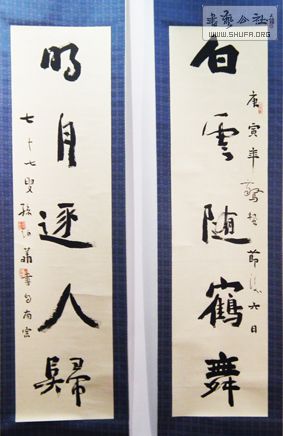 書藝公社
WWW.SHUFA.ORG
白雲随鶴舞
庚寅年驚蟄節後六日
明月逐人歸
七十七叟孫伯翔書